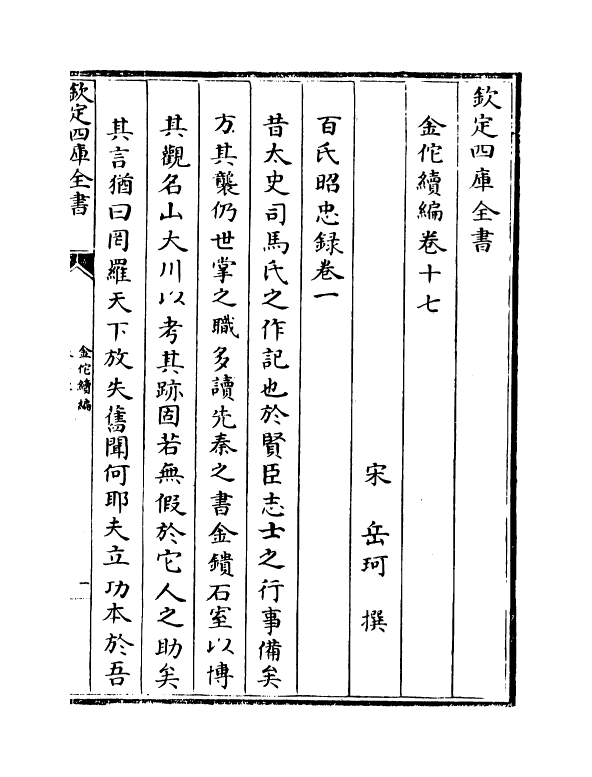 欽定四庫全書
金佗續編卷十七
宋 岳珂 撰
百氏昭忠録卷一
昔太史司馬氏之作記也於賢臣志士之行事備矣
方其襲仍世掌之職多讀先秦之書金鐀石室以博
其觀名山大川以考其跡固若無假於它人之助矣
其言猶曰罔羅天下放失舊聞何耶夫立功本於吾
欽定四庫全書
金佗續編
一